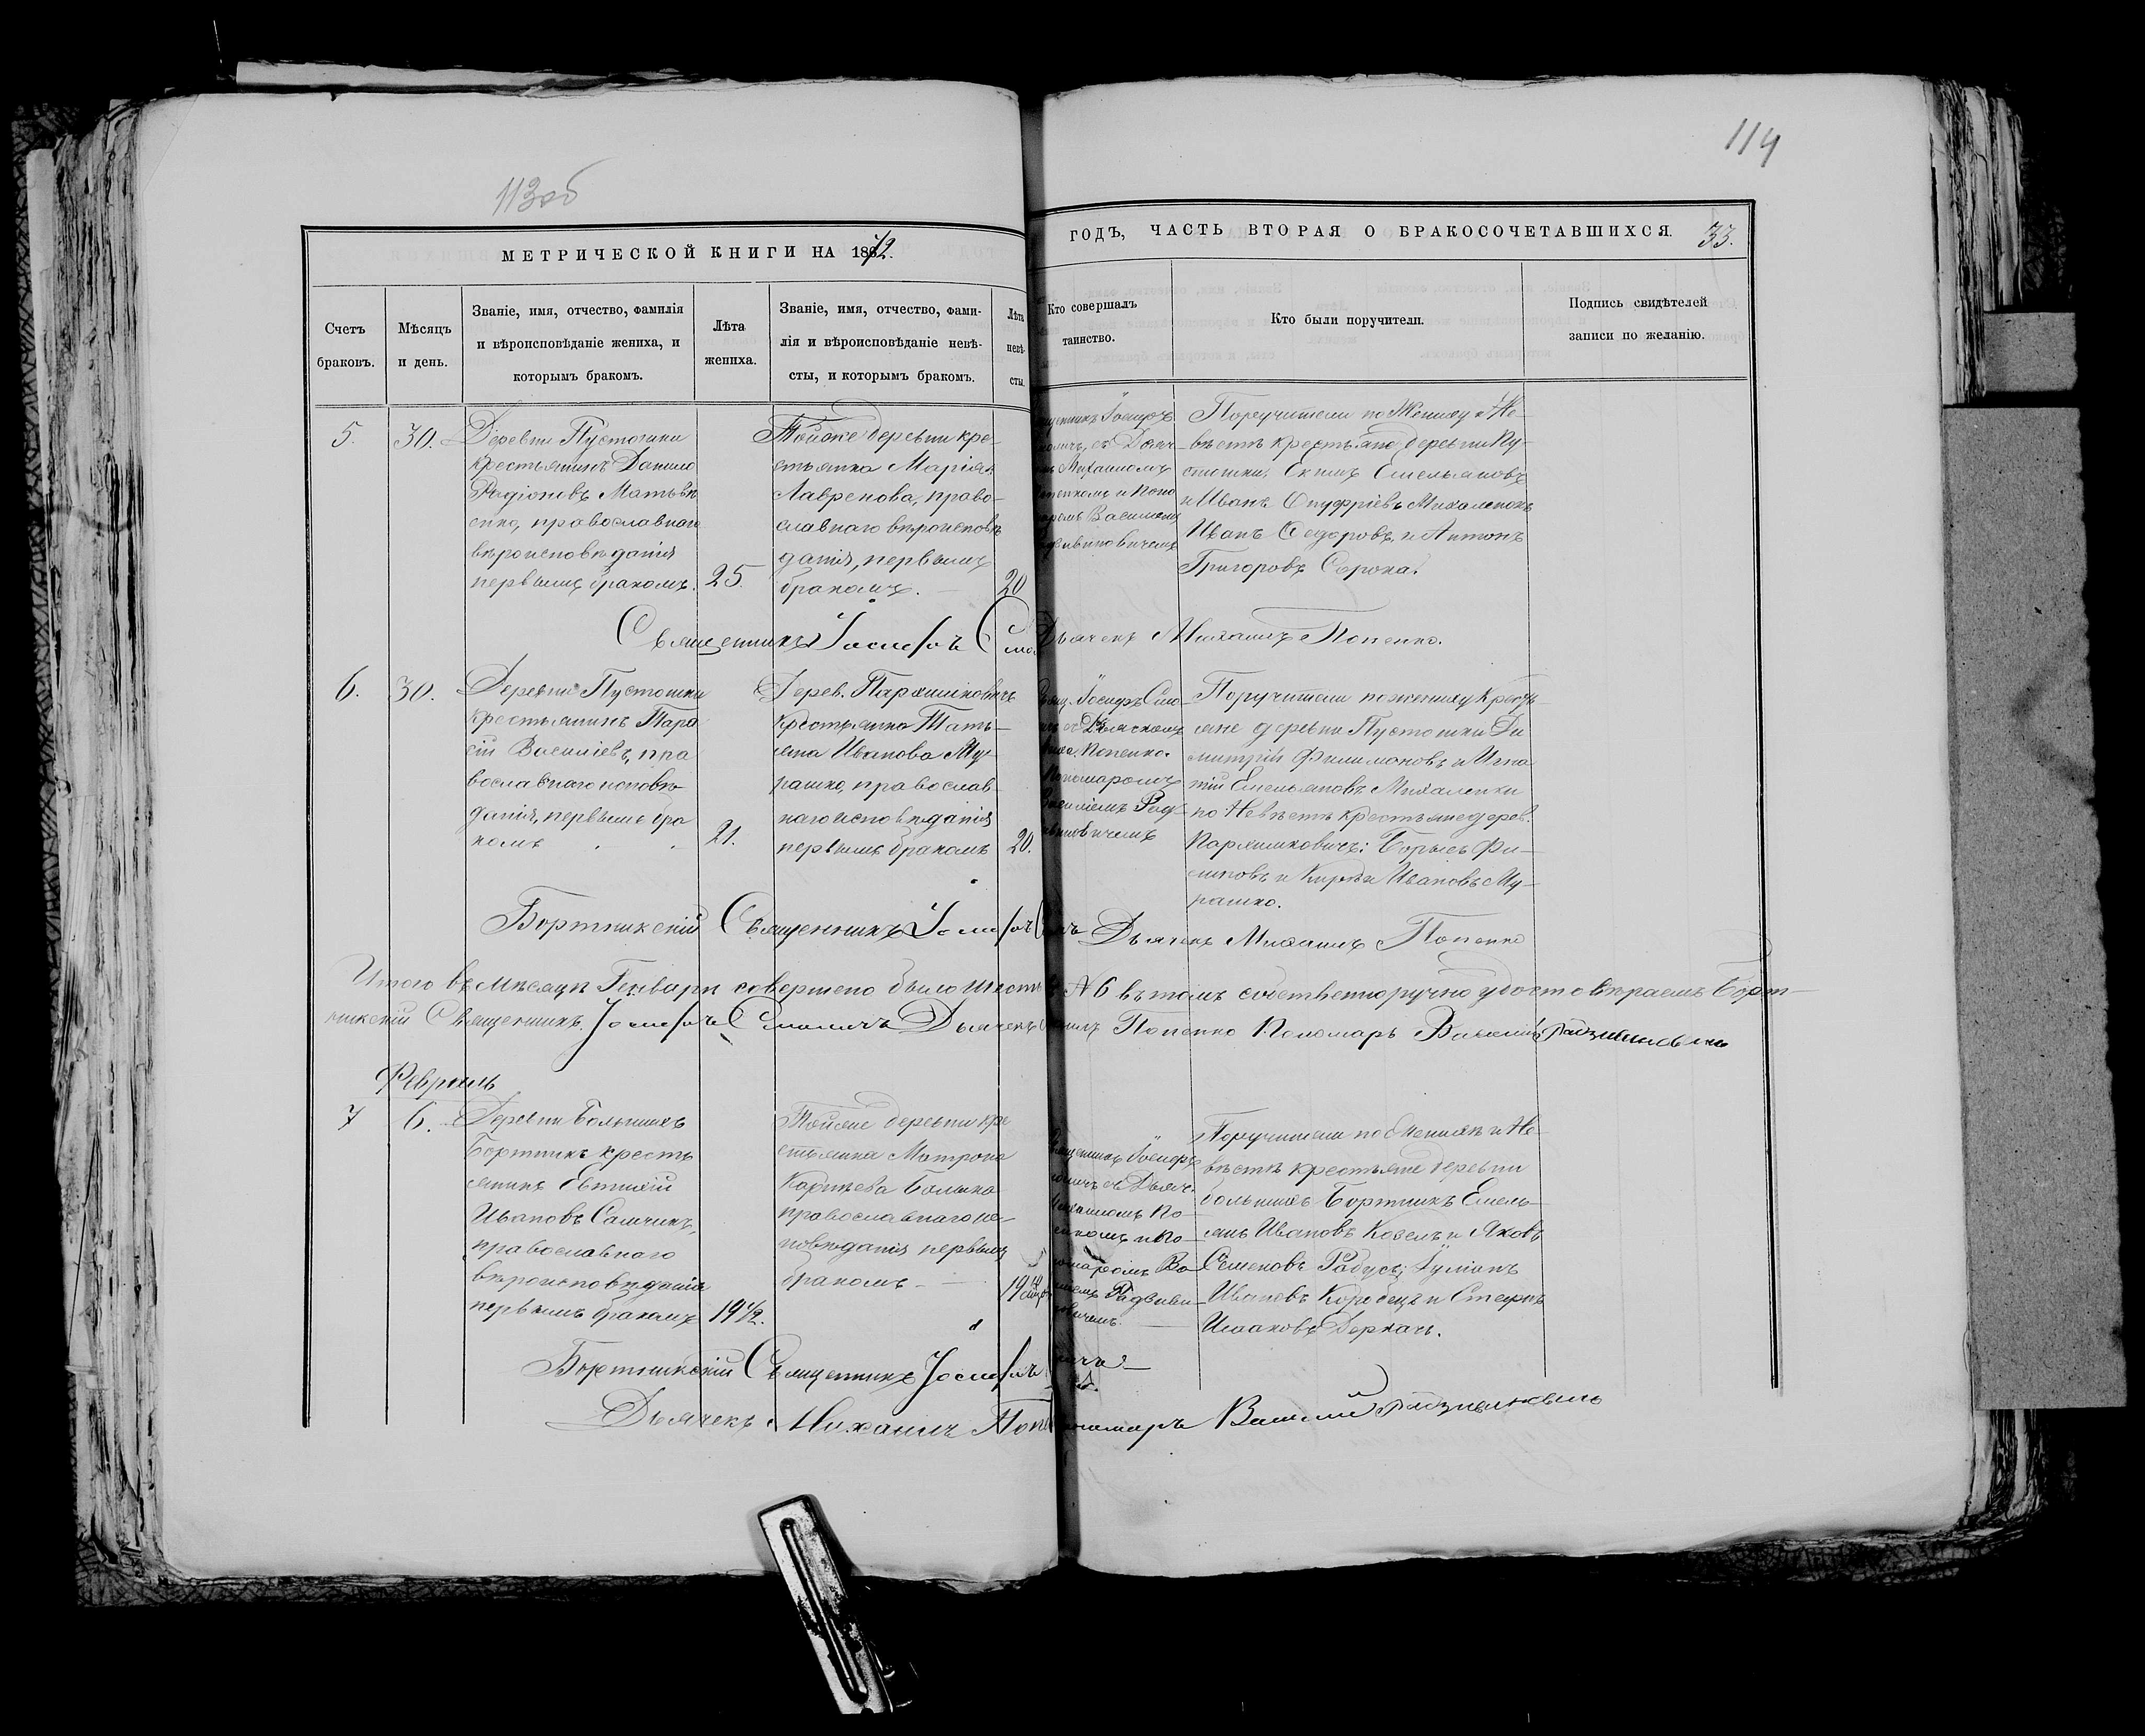 114
113об
МЕТРИЧЕСКОЙ КНИГИ НА 1872.
ГОДЪ, ЧАСТЬ ВТОРАЯ О БРАКОСОЧЕТАВШИХСЯ.
33.
Счетъ
браковъ.
Мѣсяцъ
и день.
Званіе, имя, отчество, фамилія
и вѣроисповѣданіе жениха, и
которымъ бракомъ.
Лѣта
жениха.
Званіе, имя, отчество, фами-
лія и вѣроисповѣданіе невѣ-
сты, и которымъ бракомъ.
Лѣта
невѣ-
сты.
Кто совершалъ
таинство.
Кто были поручители.
Подпись свидѣтелей
записи по желанію.
5.
30.
Деревни Пустошки
крестьянинъ Данило
Радіоновъ Матвѣ
енко, православнаго
вѣроисповѣданія
первымъ бракомъ.
25.
Тойже деревни кре-
стьянка Марія
Лавренова, право-
славнаго вѣроисповѣ
данія, первымъ
бракомъ.
20
Іосифъ
съ Дьяч-
Михаиломъ
и Поно
Василіемъ
Поручители по Жениху и Не-
вѣстѣ крестьяне деревни Пу-
стошки, Екимъ Емельяновъ
и Иванъ Онуфріевъ Михаленокъ
Иванъ Сидоровъ и Антонъ
Григоровъ Сорока.
Священникъ Іосифъ
Дьячекъ Михаилъ Попенко.
6.
30.
Деревни Пустошки
крестьянинъ Тара
сій Василіевъ, пра
вославнаго исповѣ-
данія, первымъ бра
комъ
21.
Дерев. Пархимковичъ
крестьянка Тать-
яна Иванова Му-
рашко, православ
наго исповѣданія
первымъ бракомъ
20.
Іосифъ Смо-
съ Дьячкомъ
Попенко.
Пономаромъ
Василіемъ Рад-
Поручители по жениху кресть-
яне деревни Пустошки Ди
митрій Филимоновъ и Игна
тій Емельяновъ Михаленки
по Невѣстѣ крестьяне дерев.
Пархимковичъ: Борисъ Фи-
липовъ и Кирила Ивановъ Му-
рашко.
Бортникскій Священникъ Іосифъ
Дьячекъ Михаилъ Попенко
Итого въ мѣсяцѣ Генварѣ совершено было шесть № 6 въ томъ собственноручно удостовѣраемъ Борт-
никскій Священникъ Іосифъ Смоличъ Дьячекъ Попенко Пономарь Василій
Февраль
7
6.
Деревни Большихъ
Бортникъ кресть
янинъ Евтихій
Ивановъ Самчикъ,
православнаго
вѣроисповѣданія
первымъ бракомъ
19 1/2.
Тойже деревни кре
стьянка Матрона
Корнѣева
православнаго ис-
повѣданія первымъ
бракомъ
19
Іосифъ
съ Дьяч.
По-
и По-
Ва-
Поручители по Женихѣ и Не-
вѣстѣ крестьяне деревни
большихъ Бортникъ Емель-
янъ Ивановъ Козелъ и Яковъ
Семеновъ
Ивановъ и Стефанъ
Исааковъ Деркачъ.
Бортникскій Священникъ Іосифъ
Дьячекъ Михаилъ
Василій